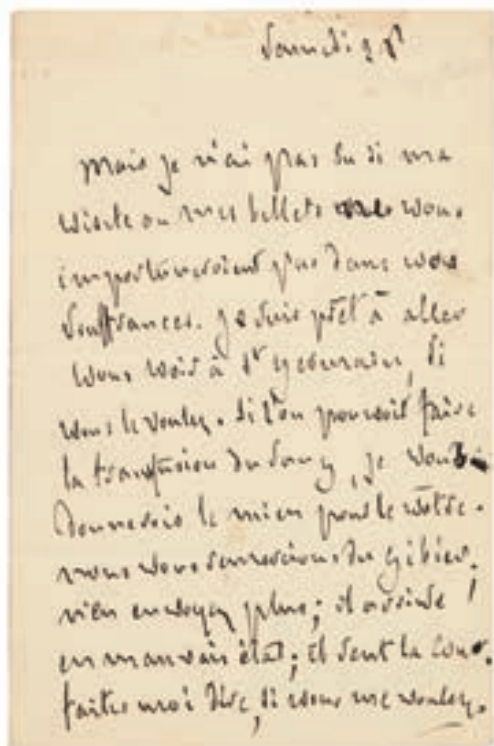 Samedi
Mais je n'ai pas su si ma
visite ou mes billets ne vous
importuneroient pas dans vos
souffrances. Je suis prêt à aller
vous voir à St Germain, si
vous le voulez. Si l'on pouvoit faire
la transfusion du sang, je vous
donnerois le mien pour le vôtre.
nous vous remercions du gibier.
n'en envoyez plus; il arrive
en mauvais état; il sent la
faites moi dire, si vous me voulez.